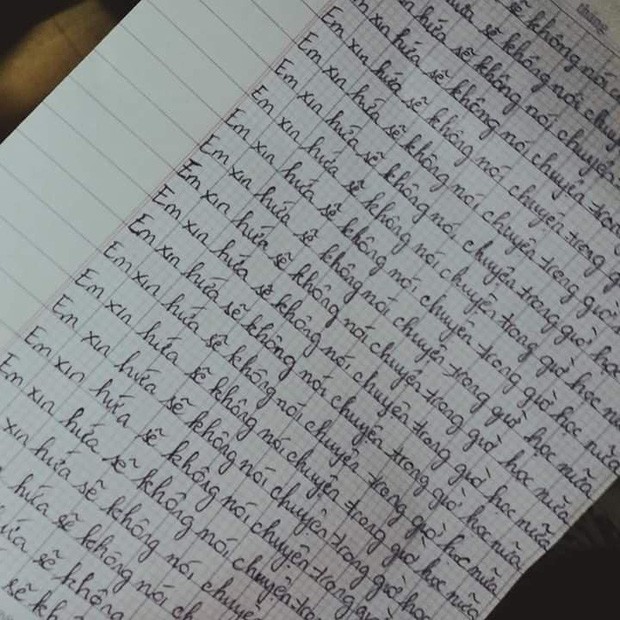 sẽ không nói
hứa sẽ không nói
hứa sẽ không nói chuyện
xin hứa sẽ không nói chuyện
Em xin hứa sẽ không nói chuyện trong
Em xin hứa sẽ không nói chuyện trong
Em xin hứa sẽ không nói chuyện trong giờ
Em xin hứa sẽ không nói chuyện trong giờ học
Em xin hứa sẽ không nói chuyện trong giờ học
Em xin hứa sẽ không nói chuyện trong giờ học nữa
Em xin hứa sẽ không nói chuyện trong giờ học nữa
Em xin hứa sẽ không nói chuyện trong giờ học nữa
Em xin hứa sẽ không nói chuyện trong giờ học nữa
Em xin hứa sẽ không nói chuyện trong giờ học nữa
Em xin hứa sẽ không nói chuyện trong giờ học nữa
Em xin hứa sẽ không nói chuyện trong giờ học
Em xin hứa sẽ không nói chuyện trong giờ
Em xin hứa sẽ không nói chuyện
xin hứa sẽ không nói chuyện
hứa sẽ không nói
sẽ không
sẽ